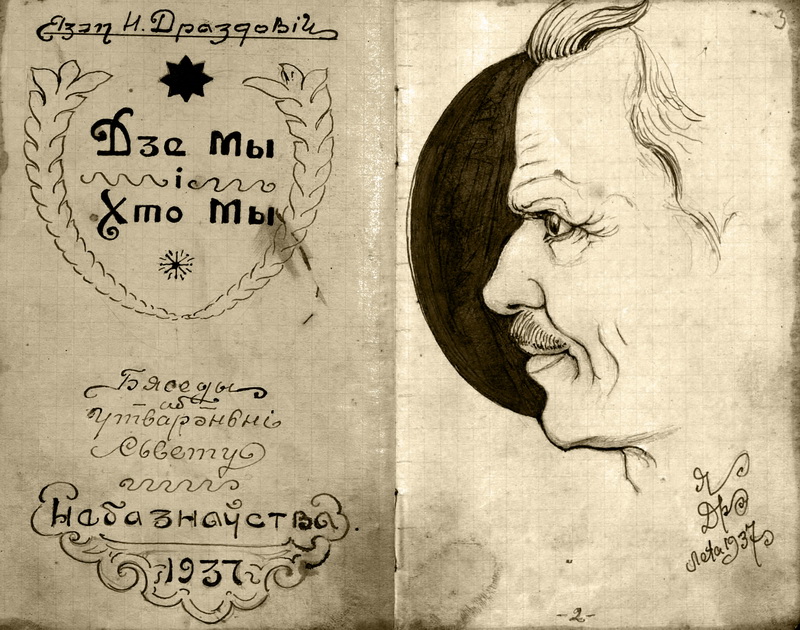 Язэп Н. Драздовіч
Дзе мы
і
Хто мы
Бяседы
аб
утварэньні
Сьвету
Небазнаўства.
1937
3
Я
Др
лета 1937
-2-